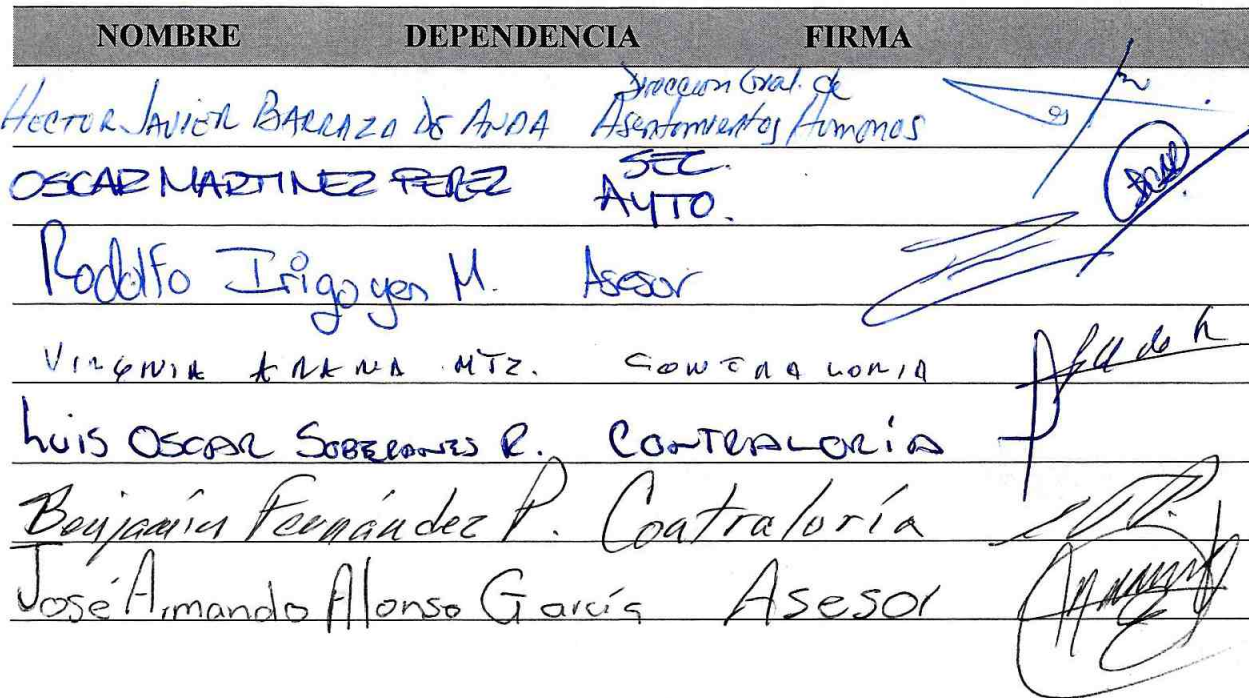 NOMBRE DEPENDENCIA FIRMA
HECTOR JAVIER BARRAZA DE ANDA Direccion Gral. de Asentamientos Humanos
OSCAR MARTINEZ PEREZ SEC. AYTO.
Rodolfo Irigoyen M. Asesor
VIRGINIA ARANA MTZ. CONTRALORIA
LUIS OSCAR SOBERANES R. CONTRALORÍA
Benjamín Fernández P. Contraloría
José Armando Alonso García Asesor